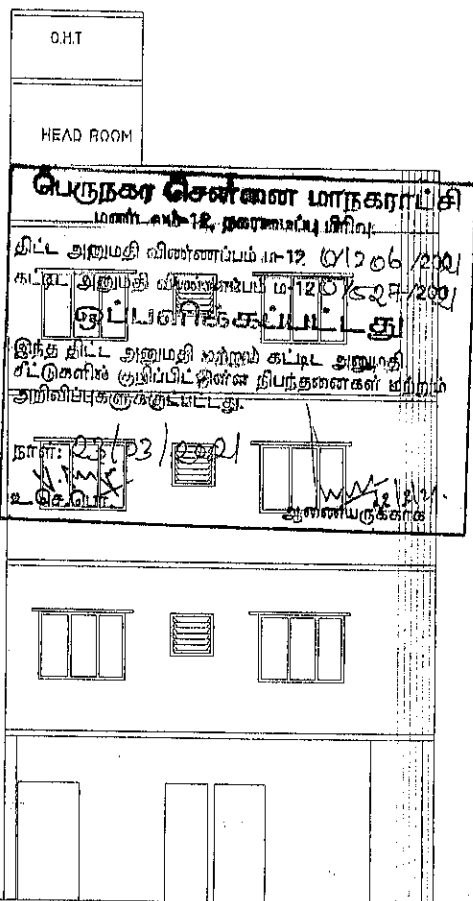 O.H.T
HEAD ROOM
பெருநகர சென்னை மாநகராட்சி
மண்டலம்-12, நகரமைப்பு பிரிவு
திட்ட அனுமதி விண்ணப்பம் ம-12 /2021
கட்டிட அனுமதி விண்ணப்பம் ம-12 /2021
ஒப்பளிக்கப்பட்டது
இந்த திட்ட அனுமதி மற்றும் கட்டிட அனுமதி
சீட்டுகளில் குறிப்பிட்டுள்ள நிபந்தனைகள் மற்றும்
அறிவிப்புகளுக்குட்பட்டது.
நாள்: 23/03/2021
உ.செ.பொ.
ஆணையருக்காக